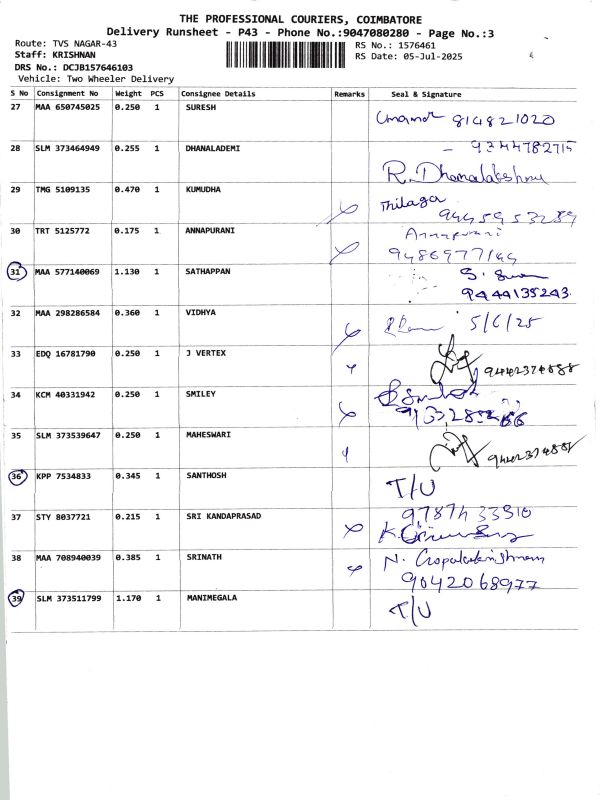 THE PROFESSIONAL COURIERS, COIMBATORE
Delivery Runsheet - P43 - Phone No.:9047080280 - Page No.:3
Route: TVS NAGAR-43
RS No.: 1576461
Staff: KRISHNAN
RS Date: 05-Jul-2025
DRS No.: DCJB157646103
Vehicle: Two Wheeler Delivery
S No Consignment No Weight PCS Consignee Details Remarks Seal & Signature
27 MAA 650745025 0.250 1 SURESH
814821020
28 SLM 373464949 0.255 1 DHANALADEMI
- 9344782715
R. Dhanalakshmi
29 TMG 5109135 0.470 1 KUMUDHA
Thilaga
9445953289
30 TRT 5125772 0.175 1 ANNAPURANI
Annapurani
31 MAA 577140069 1.130 1 SATHAPPAN
9444135243
32 MAA 298286584 0.360 1 VIDHYA
5/6/25
33 EDQ 16781790 0.250 1 J VERTEX
9442374888
34 KCM 40331942 0.250 1 SMILEY
35 SLM 373539647 0.250 1 MAHESWARI
36 KPP 7534833 0.345 1 SANTHOSH
T/U
37 STY 8037721 0.215 1 SRI KANDAPRASAD
38 MAA 708940039 0.385 1 SRINATH
N. Gopalakrishnan
9042068977
39 SLM 373511799 1.170 1 MANIMEGALA
T/U